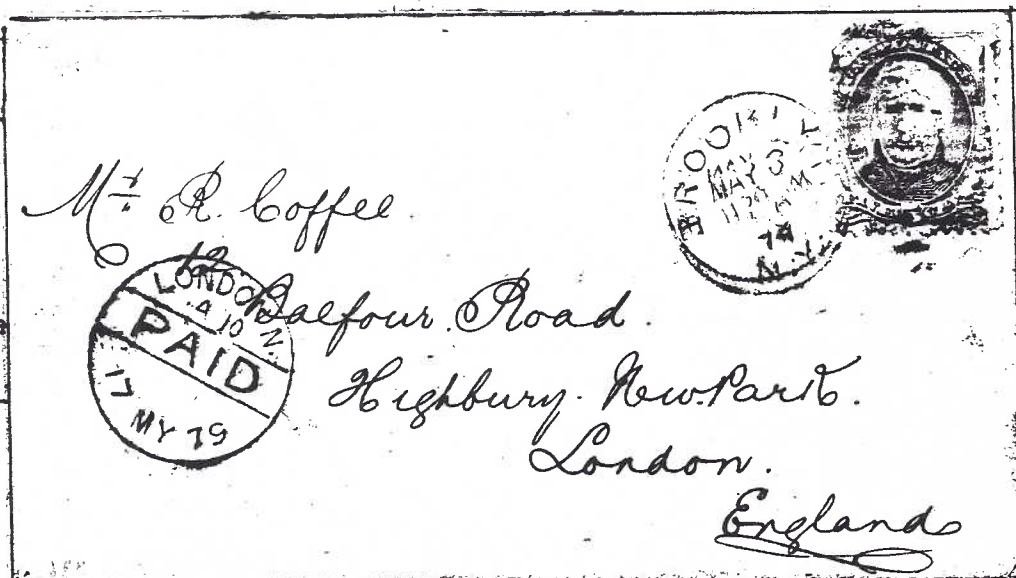 BROOKLYN
MAY 3
N.Y.
Mr. R. Coffee.
12 Balfour. Road.
Highbury. New. Park.
London.
England
LONDON. N.
PAID
17
MY 79